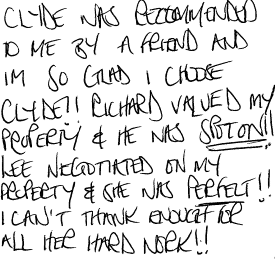 CLYDE WAS RECOMMENDED
TO ME BY A FRIEND AND
IM SO GLAD I CHOOSE
CLYDE!! RICHARD VALUED MY
PROPERTY & HE WAS SPOT ON!!
LEE NEGOTIATED ON MY
PROPERTY & SHE WAS PERFECT!!
I CAN'T THANK ENOUGH FOR
ALL HER HARD WORK!!